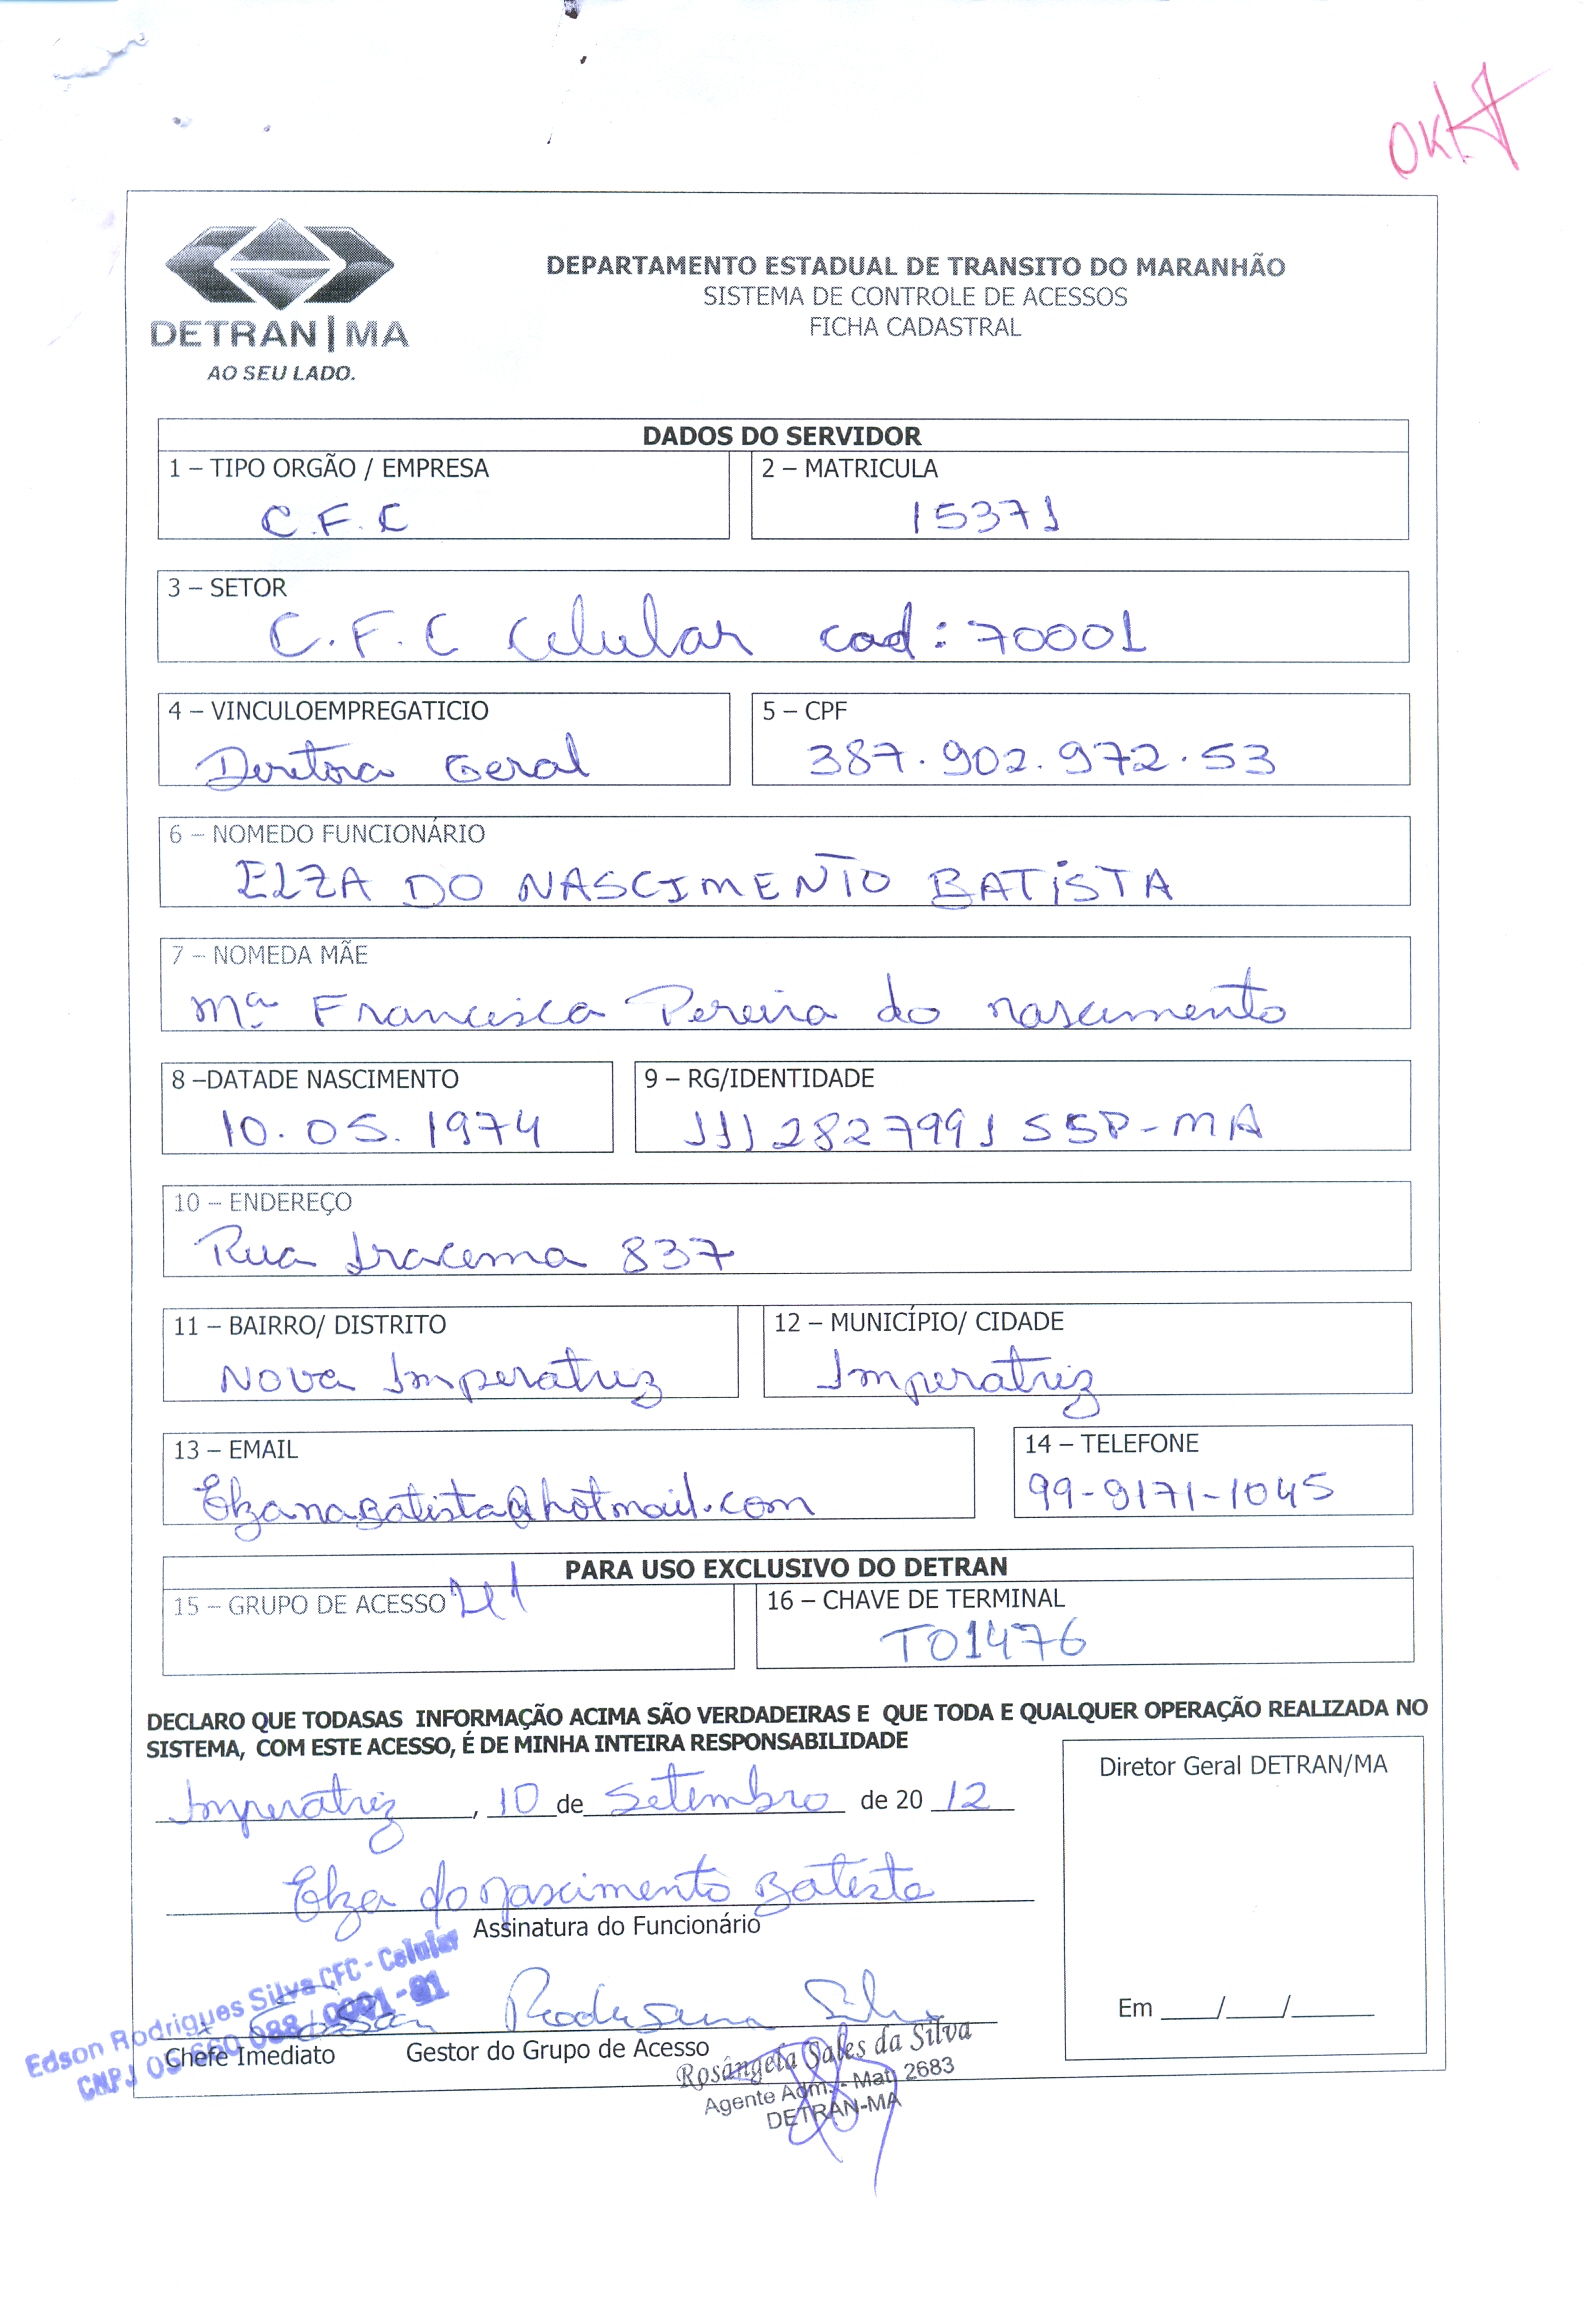 DETRAN|MA
AO SEU LADO.
DEPARTAMENTO ESTADUAL DE TRANSITO DO MARANHÃO
SISTEMA DE CONTROLE DE ACESSOS
FICHA CADASTRAL
DADOS DO SERVIDOR
1 – TIPO ORGÃO / EMPRESA
C.F.C
2 – MATRICULA
15371
3 – SETOR
C.F.C Celular cad: 70001
4 – VINCULOEMPREGATICIO
Diretora Geral
5 – CPF
387.902.972.53
6 – NOMEDO FUNCIONÁRIO
ELZA DO NASCIMENTO BATISTA
7 – NOMEDA MÃE
Mª Francisca Pereira do nascimento
8 –DATADE NASCIMENTO
10.05.1974
9 – RG/IDENTIDADE
11128279991 SSP-MA
10 – ENDEREÇO
Rua Iracema 837
11 – BAIRRO/ DISTRITO
Nova Imperatriz
12 – MUNICÍPIO/ CIDADE
Imperatriz
13 – EMAIL
Elzanabatista@hotmail.com
14 – TELEFONE
99-9171-1045
PARA USO EXCLUSIVO DO DETRAN
15 – GRUPO DE ACESSO
16 – CHAVE DE TERMINAL
T01476
DECLARO QUE TODASAS INFORMAÇÃO ACIMA SÃO VERDADEIRAS E QUE TODA E QUALQUER OPERAÇÃO REALIZADA NO
SISTEMA, COM ESTE ACESSO, É DE MINHA INTEIRA RESPONSABILIDADE
Imperatriz, 10 de Setembro de 20 12
Elza do Nascimento Batista
Assinatura do Funcionário
Diretor Geral DETRAN/MA
Em ___/___/____
Edson Rodrigues Silva CFC - Celular
CNPJ
Silva
Chefe Imediato
Gestor do Grupo de Acesso
Rosângela Sales da Silva
Agente Adm. - Mat. 2683
DETRAN-MA